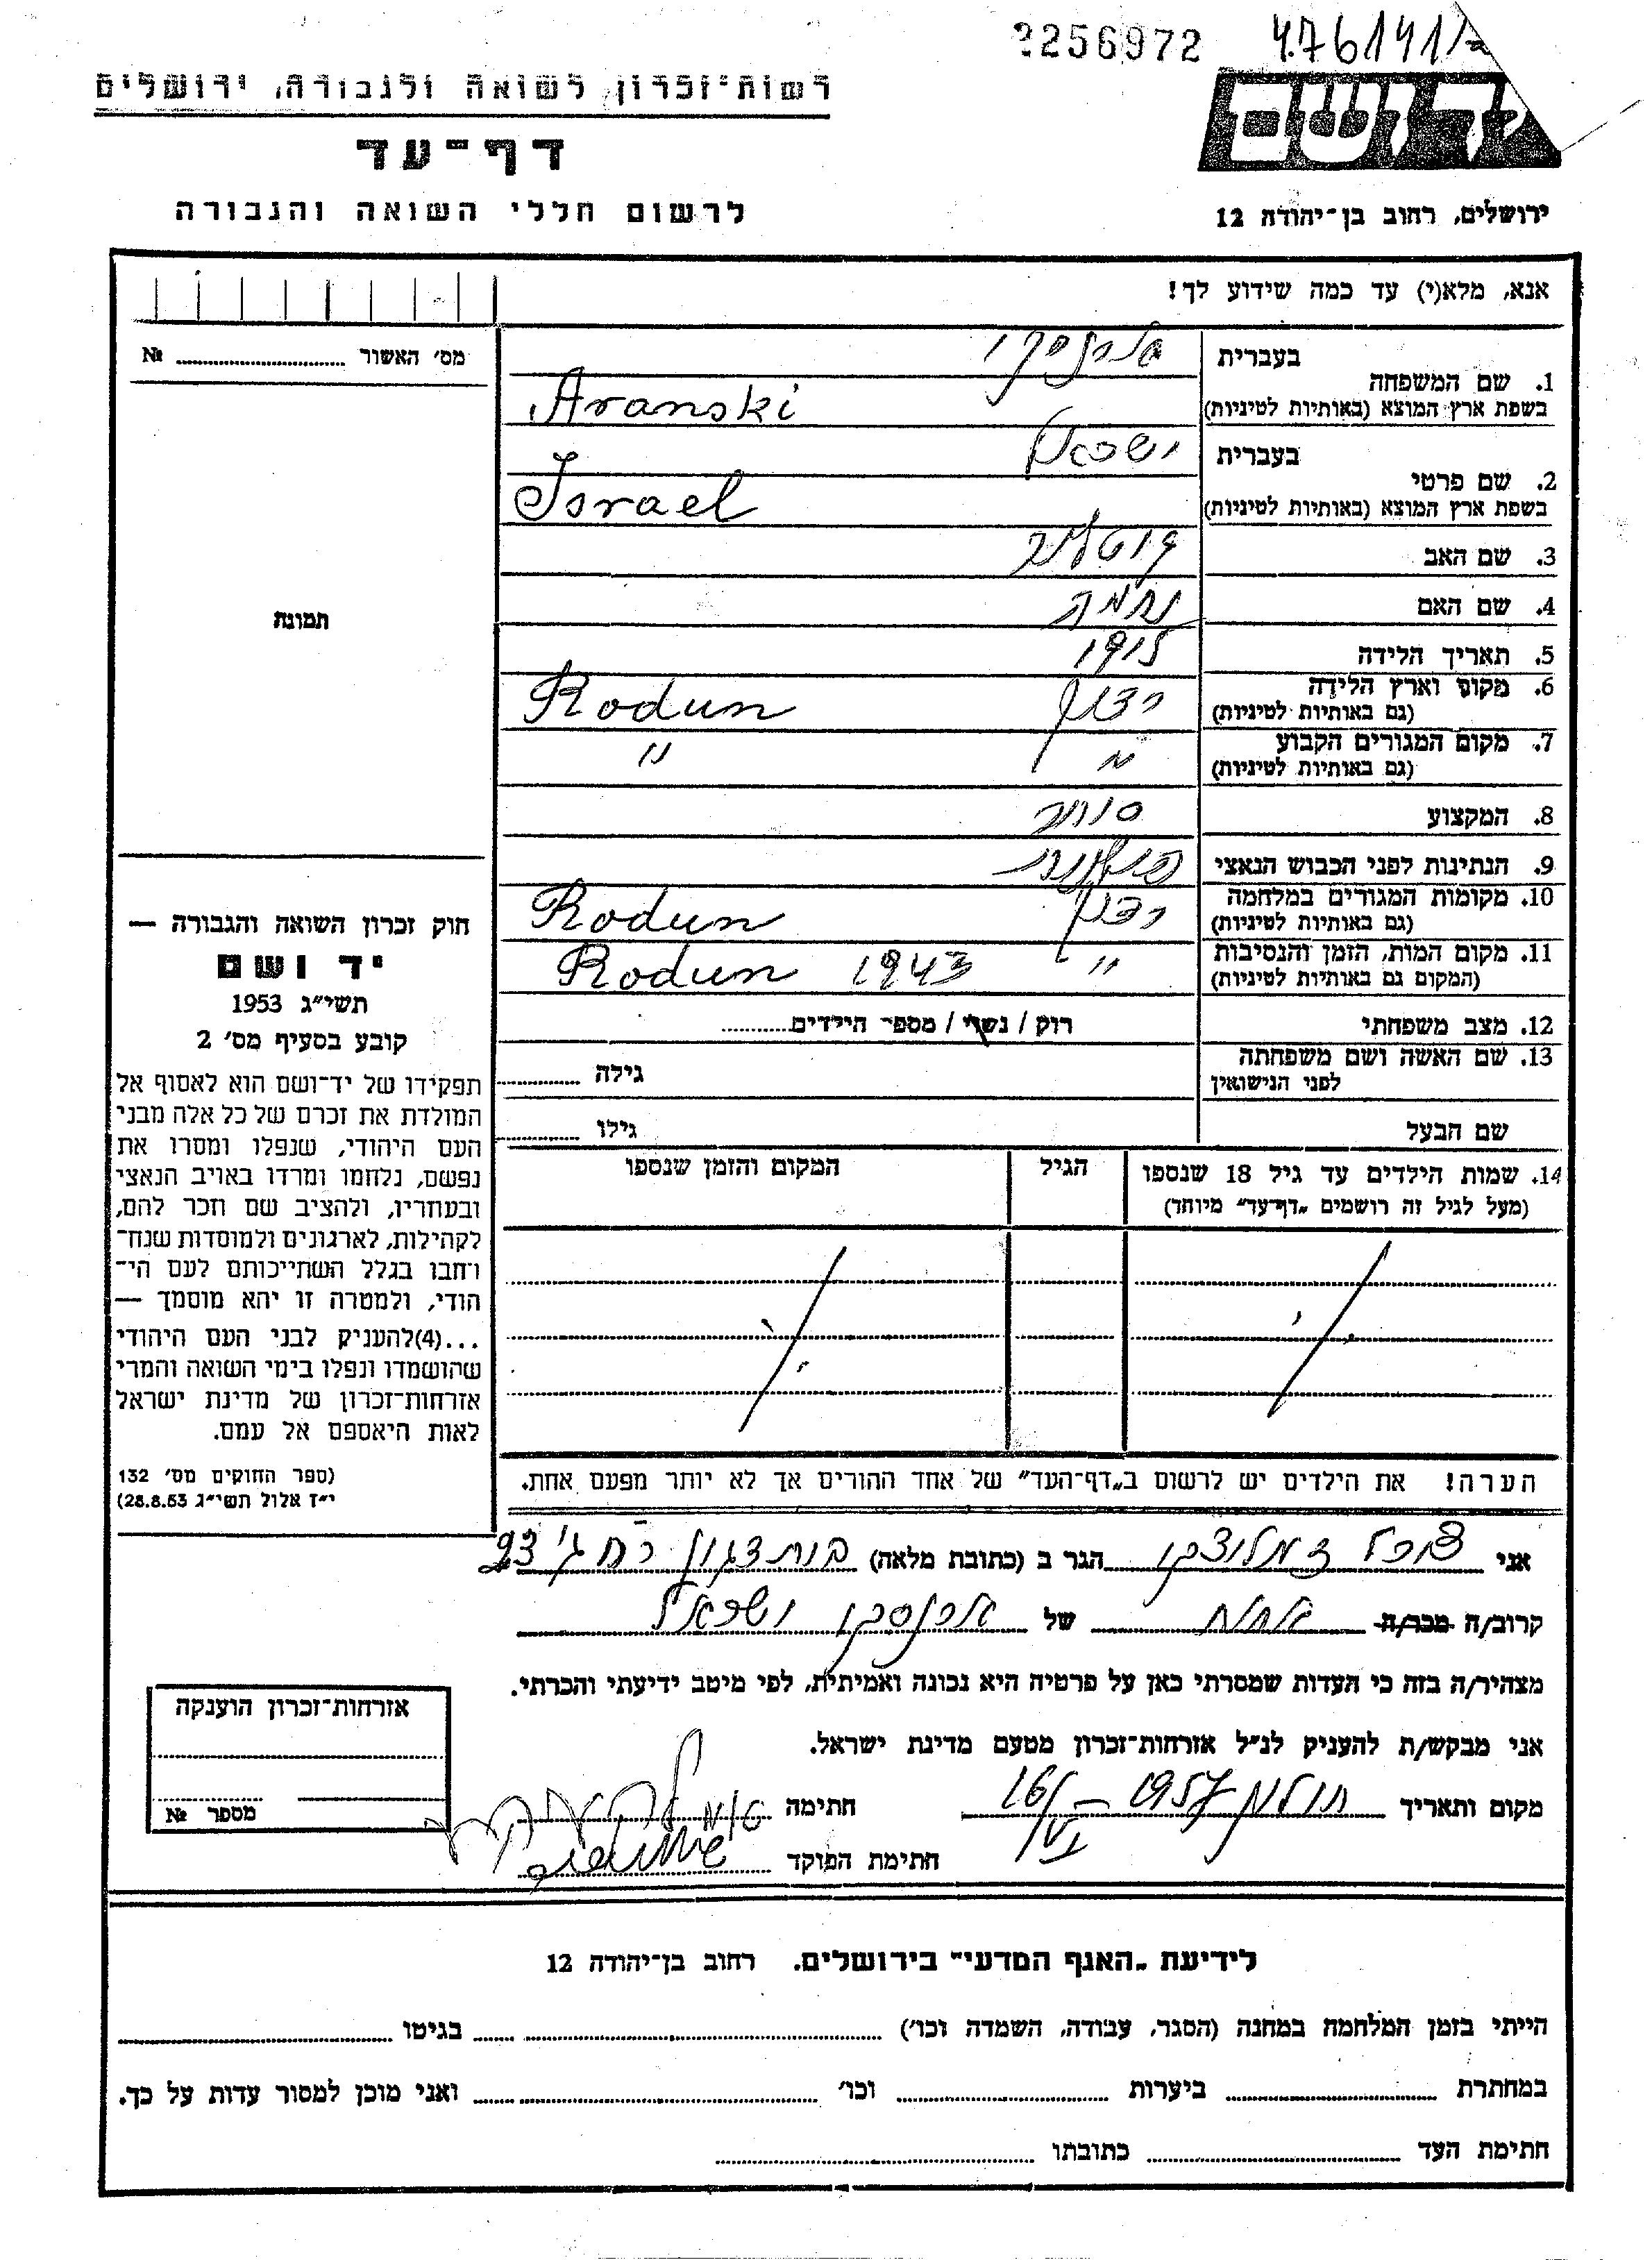 2256972
4.76141/2
רשות־זכרון לשואה ולגבורה, ירושלים
דף־עד
לרשום חללי השואה והגבורה
ירושלים, רחוב בן־יהודה 12
אנא, מלא(י) עד כמה שידוע לך!
מס׳ האשור № ........
תמונה
1. שם המשפחה בעברית ארנסקי
בשפת ארץ המוצא (באותיות לטיניות) Aranski
2. שם פרטי בעברית ישראל
בשפת ארץ המוצא (באותיות לטיניות) Israel
3. שם האב
4. שם האם נחמה
5. תאריך הלידה 1915
6. מקום וארץ הלידה (גם באותיות לטיניות) רדון Rodun
7. מקום המגורים הקבוע (גם באותיות לטיניות) " "
8. המקצוע סוחר
9. הנתינות לפני הכבוש הנאצי פולנית
10. מקומות המגורים במלחמה (גם באותיות לטיניות) רדון Rodun
11. מקום המות, הזמן והנסיבות (המקום גם באותיות לטיניות) " Rodun 1943
12. מצב משפחתי רוק / נשוי / מספר הילדים........
13. שם האשה ושם משפחתה לפני הנישואין גילה ........
שם הבעל גילו ........
14. שמות הילדים עד גיל 18 שנספו הגיל המקום והזמן שנספו
(מעל לגיל זה רושמים „דף־עד” מיוחד)
הערה! את הילדים יש לרשום ב„דף־העד” של אחד ההורים אך לא יותר מפעם אחת.
חוק זכרון השואה והגבורה —
יד ושם
תשי״ג 1953
קובע בסעיף מס׳ 2
תפקידו של יד־ושם הוא לאסוף אל
המולדת את זכרם של כל אלה מבני
העם היהודי, שנפלו ומסרו את
נפשם, נלחמו ומרדו באויב הנאצי
ובעוזריו, ולהציב שם וזכר להם,
לקהילות, לארגונים ולמוסדות שנח־
רבו בגלל השתייכותם לעם הי־
הודי, ולמטרה זו יהא מוסמך —
...(4)להעניק לבני העם היהודי
שהושמדו ונפלו בימי השואה והמרי
אזרחות־זכרון של מדינת ישראל
לאות היאספם אל עמם.
(ספר החוקים מס׳ 132
י״ז אלול תשי״ג 28.8.53)
אני הגר ב (כתובת מלאה) בית דגון
קרוב/ה מכר/ה של ארנסקי ישראל
מצהיר/ה בזה כי העדות שמסרתי כאן על פרטיה היא נכונה ואמיתית, לפי מיטב ידיעתי והכרתי.
אני מבקש/ת להעניק לנ״ל אזרחות־זכרון מטעם מדינת ישראל.
מקום ותאריך חולון 1957 – 16/VI חתימה
חתימת הפוקד
אזרחות־זכרון הוענקה
מספר №
לידיעת „האגף המדעי” בירושלים. רחוב בן־יהודה 12
הייתי בזמן המלחמה במחנה (הסגר, עבודה, השמדה וכו׳) ........ בגיטו ........
במחתרת ........ ביערות ........ וכו׳ ........ ואני מוכן למסור עדות על כך.
חתימת העד ........ כתובתו ........